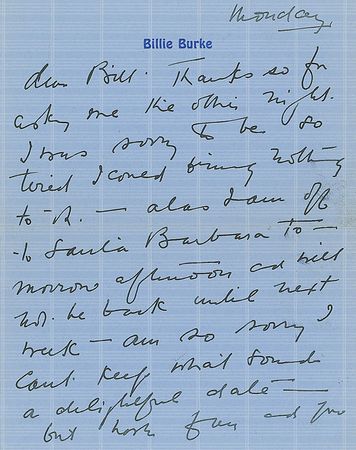 Monday
Billie Burke
dear Bill. Thanks so for
asking me the other night.
I was sorry to be so
tired I could bring nothing
to it. — alas I am off
to Santa Barbara to—
morrow afternoon ad will
not be back until next
week — am so sorry I
can't keep what sounds
a delightful date —
but have fun ad